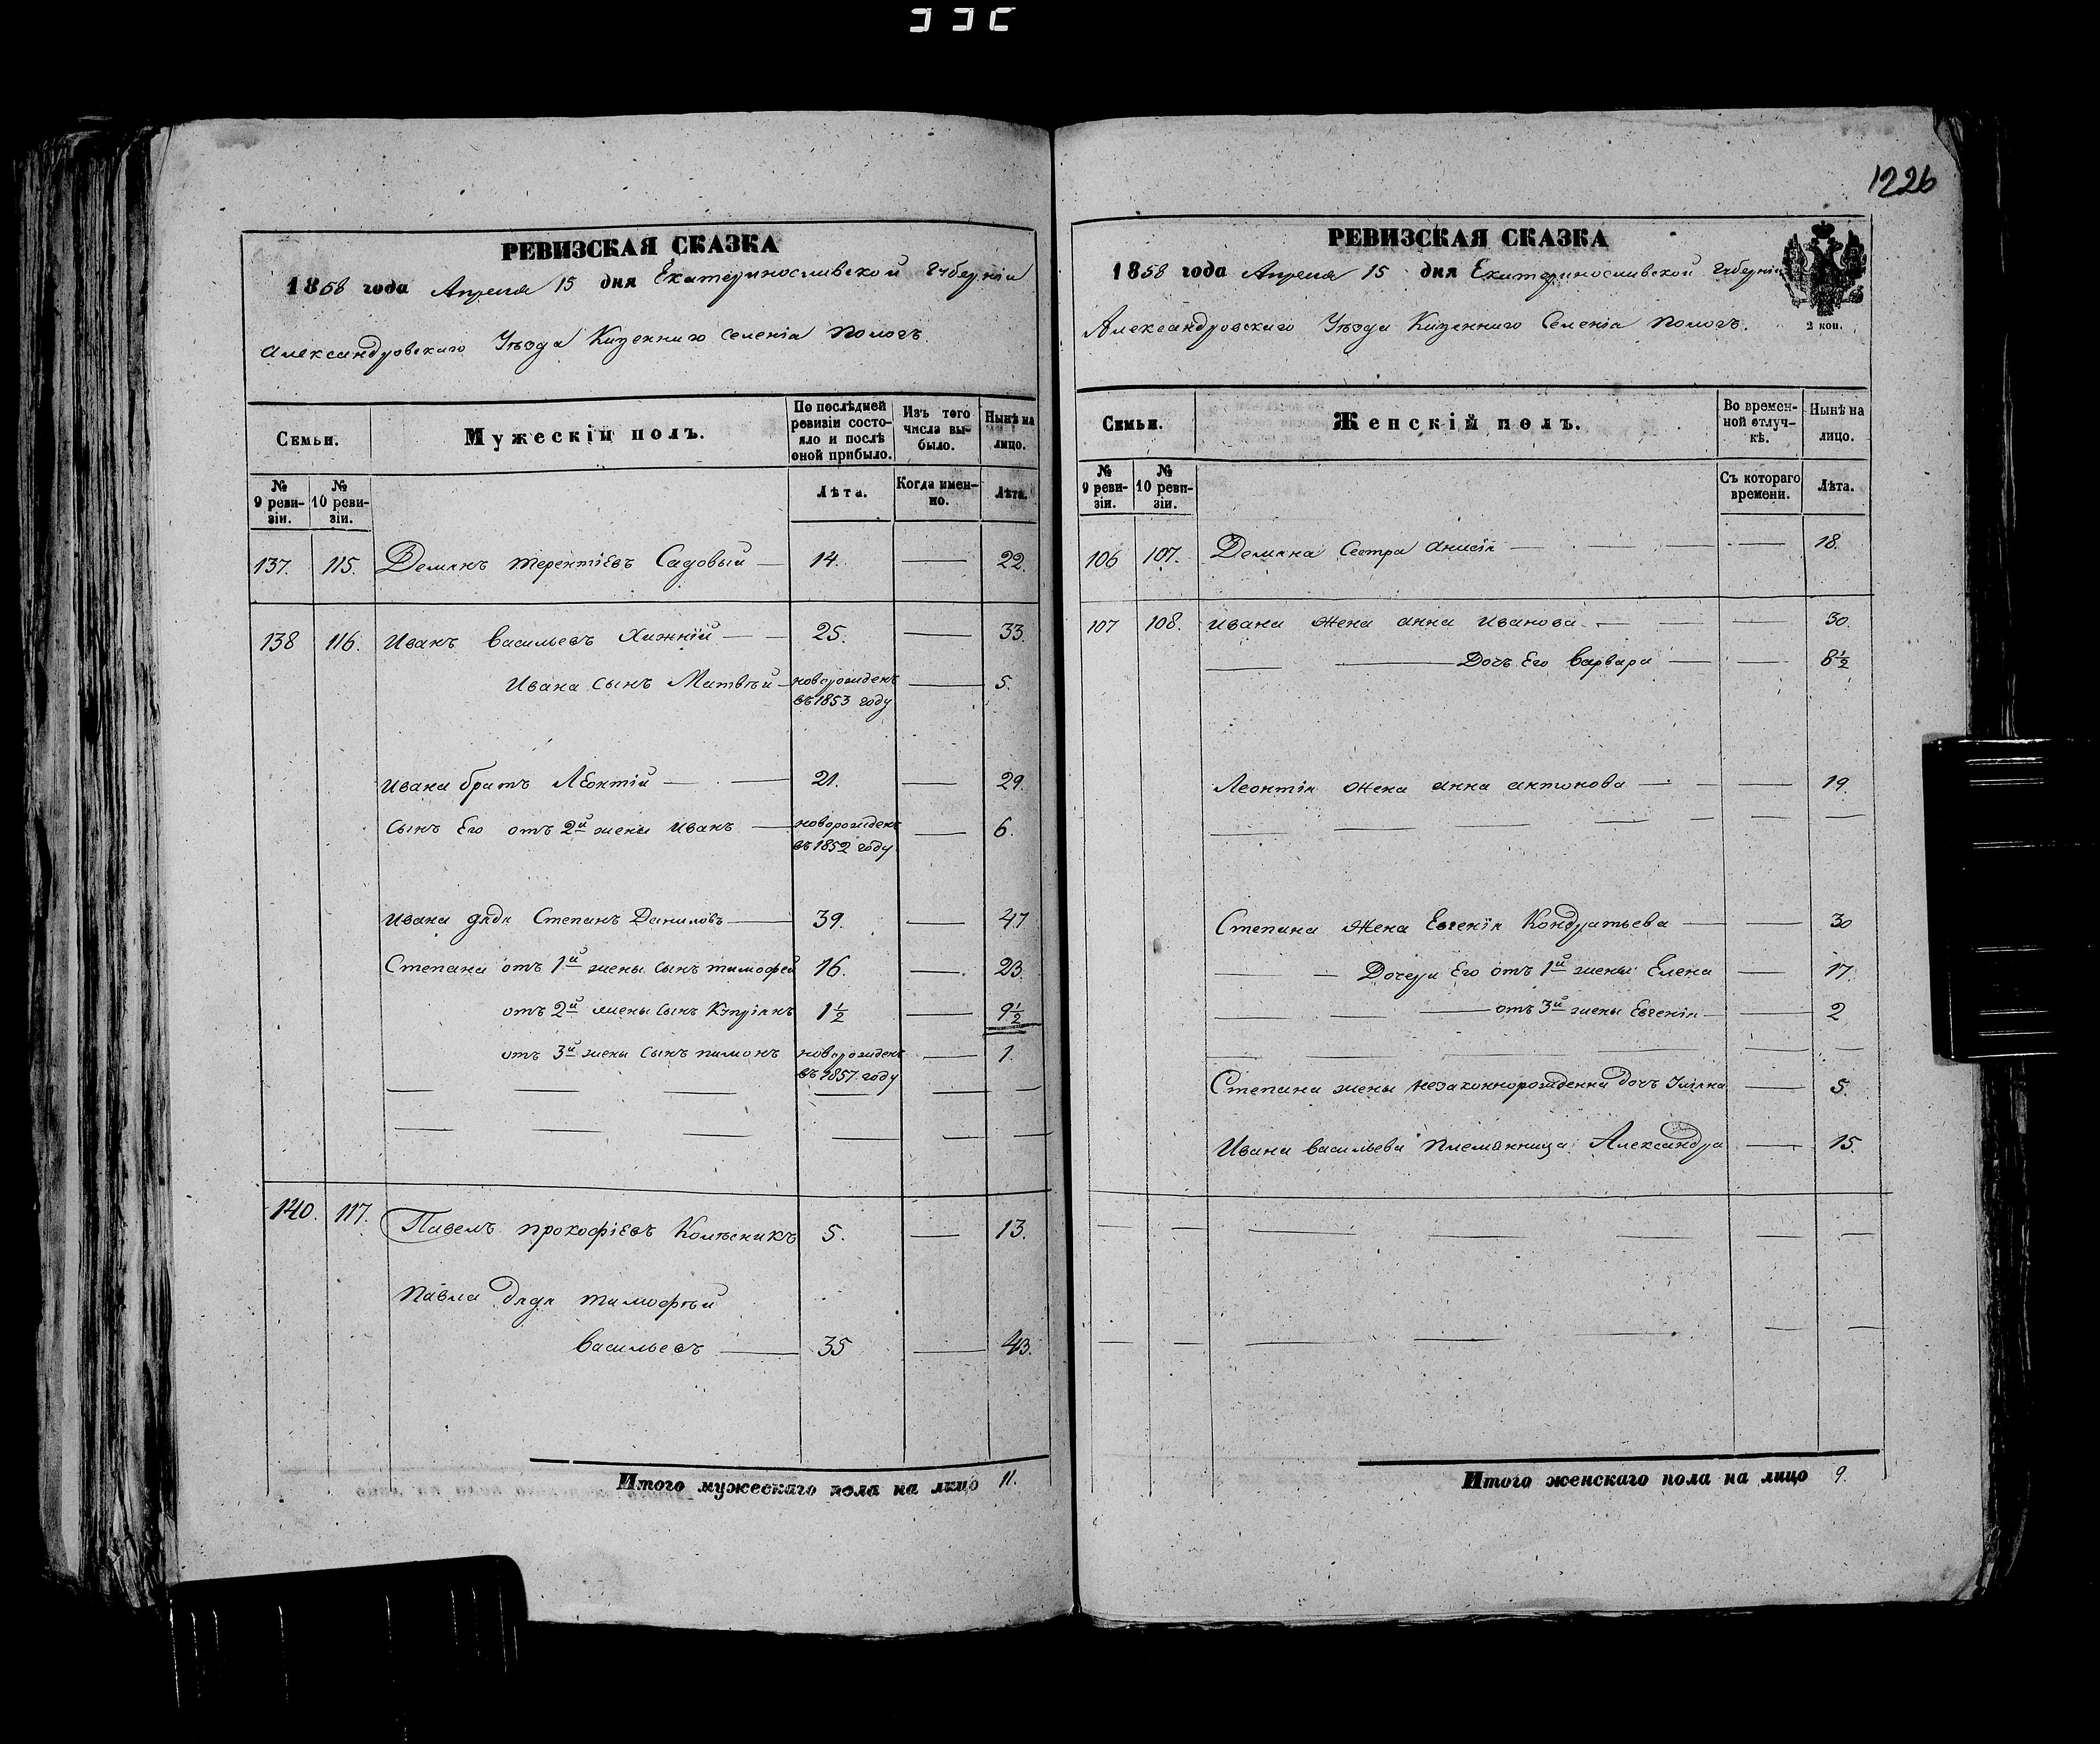 1226
РЕВИЗСКАЯ СКАЗКА
1858 года Апреля 15 дня Екатеринославской губерніи
Александровскаго Уѣзда Казеннаго Селенія Пологъ.
Семьи.
Мужескій полъ.
По послѣдней ревизіи состояло и послѣ оной прибыло.
Изъ того числа выбыло.
Нынѣ на лицо.
№ 9 ревизіи.
№ 10 ревизіи.
Лѣта.
Когда именно.
Лѣта.
137. 115. Демянъ Терентіевъ Садовый — 14. — 22.
138 116. Иванъ Васильевъ Хижній — — 25. — 33.
Ивана сынъ Матвѣй — новорожденъ — 5.
въ 1853 году
Ивана братъ Леонтій — — 21. — 29.
Сынъ Его отъ 2й жены Иванъ — новорожденъ — 6.
въ 1852 году
Ивана дядя Степанъ Даниловъ — 39. — 47
Степана отъ 1й жены сынъ Тимофей 16. — 23.
отъ 2й жены сынъ Купріянъ 1½ — 9½
отъ 3й жены сынъ Пимонъ новорожденъ — 1.
въ 1857 году
140. 117. Павелъ Прокофіевъ Колѣсникъ 5. — 13.
Павла дядя Тимофѣй
Васильевъ — 35 — 43.
Итого мужескаго пола на лицо 11.
РЕВИЗСКАЯ СКАЗКА
1858 года Апреля 15 дня Екатеринославской губерніи
Александровскаго Уѣзда Казеннаго Селенія Пологъ.
2 коп.
Семьи.
Женскій полъ.
Во временной отлучкѣ.
Нынѣ на лицо.
№ 9 ревизіи.
№ 10 ревизіи.
Съ котораго времени.
Лѣта.
106 107. Демяна Сестра Анисія — — — — 18.
107 108. Ивана Жена Анна Иванова — — — 30.
— — Дочъ Его Варвара — — 8½
Леонтія Жена Анна Антонова — — — 19.
Степана Жена Евгенія Кондратьева — — 30
— — Дочери Его отъ 1й жены Елена — 17.
— — — отъ 3й жены Евгенія — 2
Степана жены незаконнорожденна дочъ — 5.
Ивана Васильева Племянница Александра — 15.
Итого женскаго пола на лицо 9.